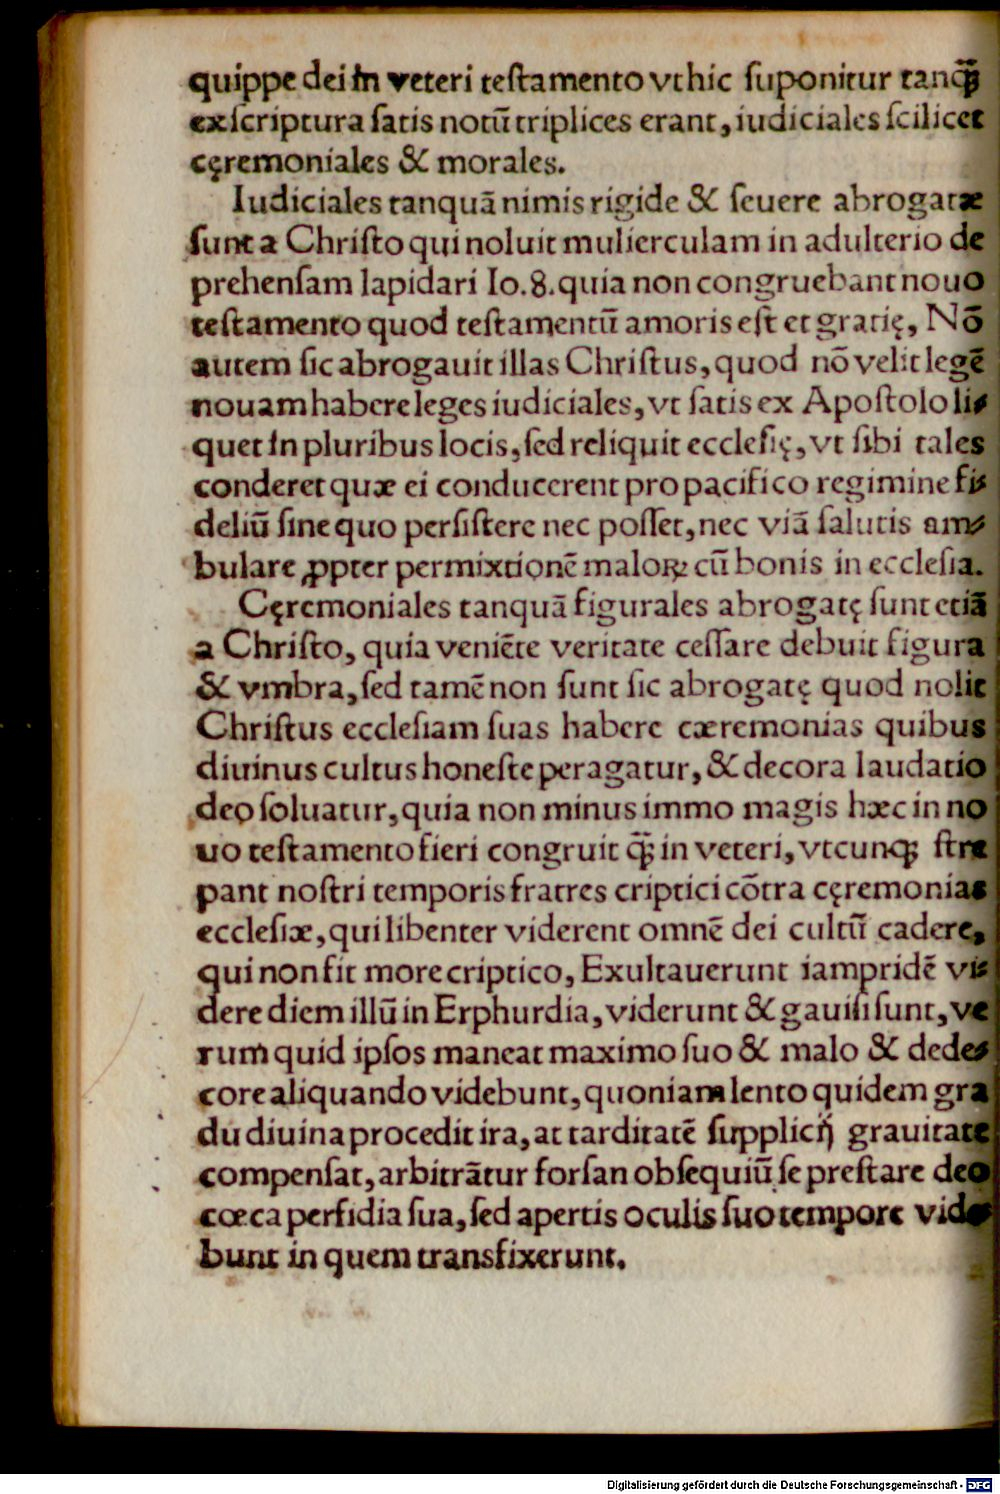 quippe dei in veteri teſtamento vt hic ſuponitur tanq̃ꝫ
ex ſcriptura ſatis notũ triplices erant, iudiciales ſcilicet
cęremoniales & morales.
Iudiciales tanquã nimis rigide & ſeuere abrogatæ
ſunt a Chriſto qui noluit mulierculam in adulterio de
prehenſam lapidari Io.8. quia non congruebant nouo
teſtamento quod teſtamentũ amoris eſt et gratię, Nõ
autem ſic abrogauit illas Chriſtus, quod nõ velit legẽ
nouam habere leges iudiciales, vt ſatis ex Apoſtolo li⸗
quet in pluribus locis, ſed reliquit eccleſię, vt ſibi tales
conderet quæ ei conducerent pro pacifico regimine fi⸗
deliũ ſine quo perſiſtere nec poſſet, nec viã ſalutis am⸗
bulare ꝓpter permixtionẽ maloꝝ cũ bonis in eccleſia.
Cęremoniales tanquã figurales abrogatę ſunt etiã
a Chriſto, quia veniẽte veritate ceſſare debuit figura
& vmbra, ſed tamẽ non ſunt ſic abrogatę quod nolit
Chriſtus eccleſiam ſuas habere cæremonias quibus
diuinus cultus honeſte peragatur, & decora laudatio
deo ſoluatur, quia non minus immo magis hæc in no
uo teſtamento fieri congruit q̃ꝫ in veteri, vtcunqꝫ ſtre
pant noſtri temporis fratres criptici cõtra cęremonias
eccleſiæ, qui libenter viderent omnẽ dei cultũ cadere,
qui non fit more criptico, Exultauerunt iampridẽ vi⸗
dere diem illũ in Erphurdia, viderunt & gauiſi ſunt, ve
rum quid ipſos maneat maximo ſuo & malo & dede⸗
core aliquando videbunt, quoniam lento quidem gra
du diuina procedit ira, at tarditatẽ ſupplicij grauitate
compenſat, arbitrãtur forſan obſequiũ ſe preſtare deo
cœca perfidia ſua, ſed apertis oculis ſuo tempore vide⸗
bunt in quem transfixerunt.
Digitalisierung gefördert durch die Deutsche Forschungsgemeinschaft - DFG